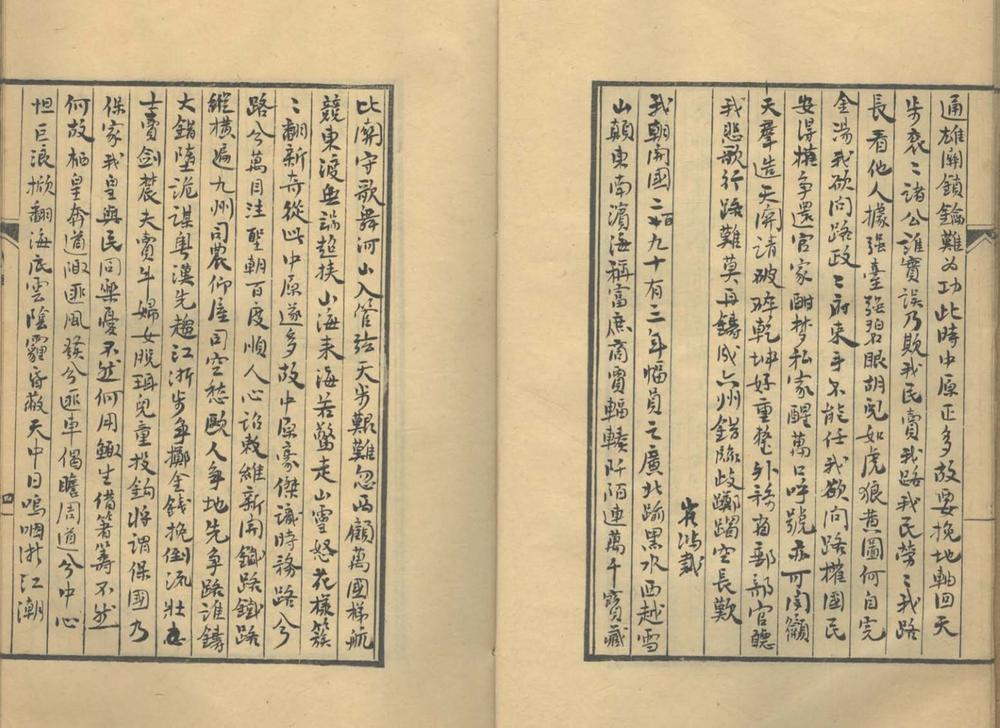 通雄關鎖鑰難为功此時中原正多故要挽地軸回天
步袞〻諸公誰實誤乃欺我民賣我路我民勞〻我路
長看他人據强臺强碧眼胡兒如虎狼黄圖何自完
金湯我欲问路政〻府束手不能任我欲问路權國民
安得横争還官家酣梦私家醒萬口呼號亦可闻籲
天羣造天開請破碎乾坤好重整外務省郵部官聽
我悲歌行路難莫再鑄成六州錯臨歧躑躅空長歎
我朝開國二百九十有二年幅員之廣北踰黑水西越雪
山巔東南濱海稱富庶商賈輻輳阡陌連萬千寶藏
比關守歌舞河山入管弦天步艱難忽西顧萬國梯航
競東渡無端超挾山海来海若驚走山靈怒花樣簇
〻翻新奇從此中原遂多故中原豪傑識時務路兮
路兮萬目注聖朝百度順人心诏敕維新開鐵路鐵路
縱横遍九州司農仰屋司空愁歐人争地先争路誰鑄
大錯墮詭謀粤漢先趨江浙步争擲金錢挽倒流壯
士賣剑農夫賣牛婦女脱珥兒童投鈎将謂保國乃
保家我皇與民同樂憂不然何用鲰生借箸籌不然
何故栖皇奔道陬匪風發兮匪車偈瞻周道兮中心
怛巨浪掀翻海底雲陰霾昏蔽天中日嗚咽浙江潮
四